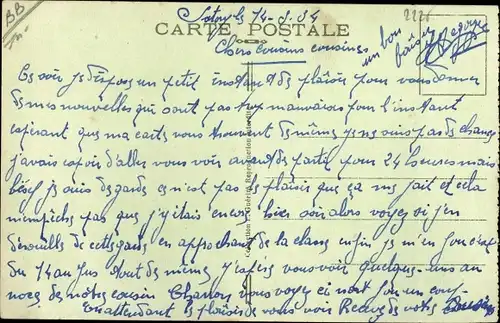 BB
Satory le 14-8-34
2226
CARTE POSTALE
Chers cousins cousines
un bon
baiser
Ce soir je dispose un petit instant de plaisir pour vous donner
de mes nouvelles qui sont pas trop mauvaises pour l'instant
espérant que ma carte vous trouvent de même je ne suis pas de chance
j'avais espoir d'aller vous voir avant de partir pour 24 heures mais
je suis de garde ce n'est pas le plaisir que ça me fait et cela
m'empêche pas que j'y étais encore hier soir alors voyez si j'en
de cette garde en approchant de la classe enfin je m'en
du 14 au jus tout de même j'espère vous voir quelques uns au
noces de notre cousin
En attendant le plaisir de vous voir Recevez de votre cousin